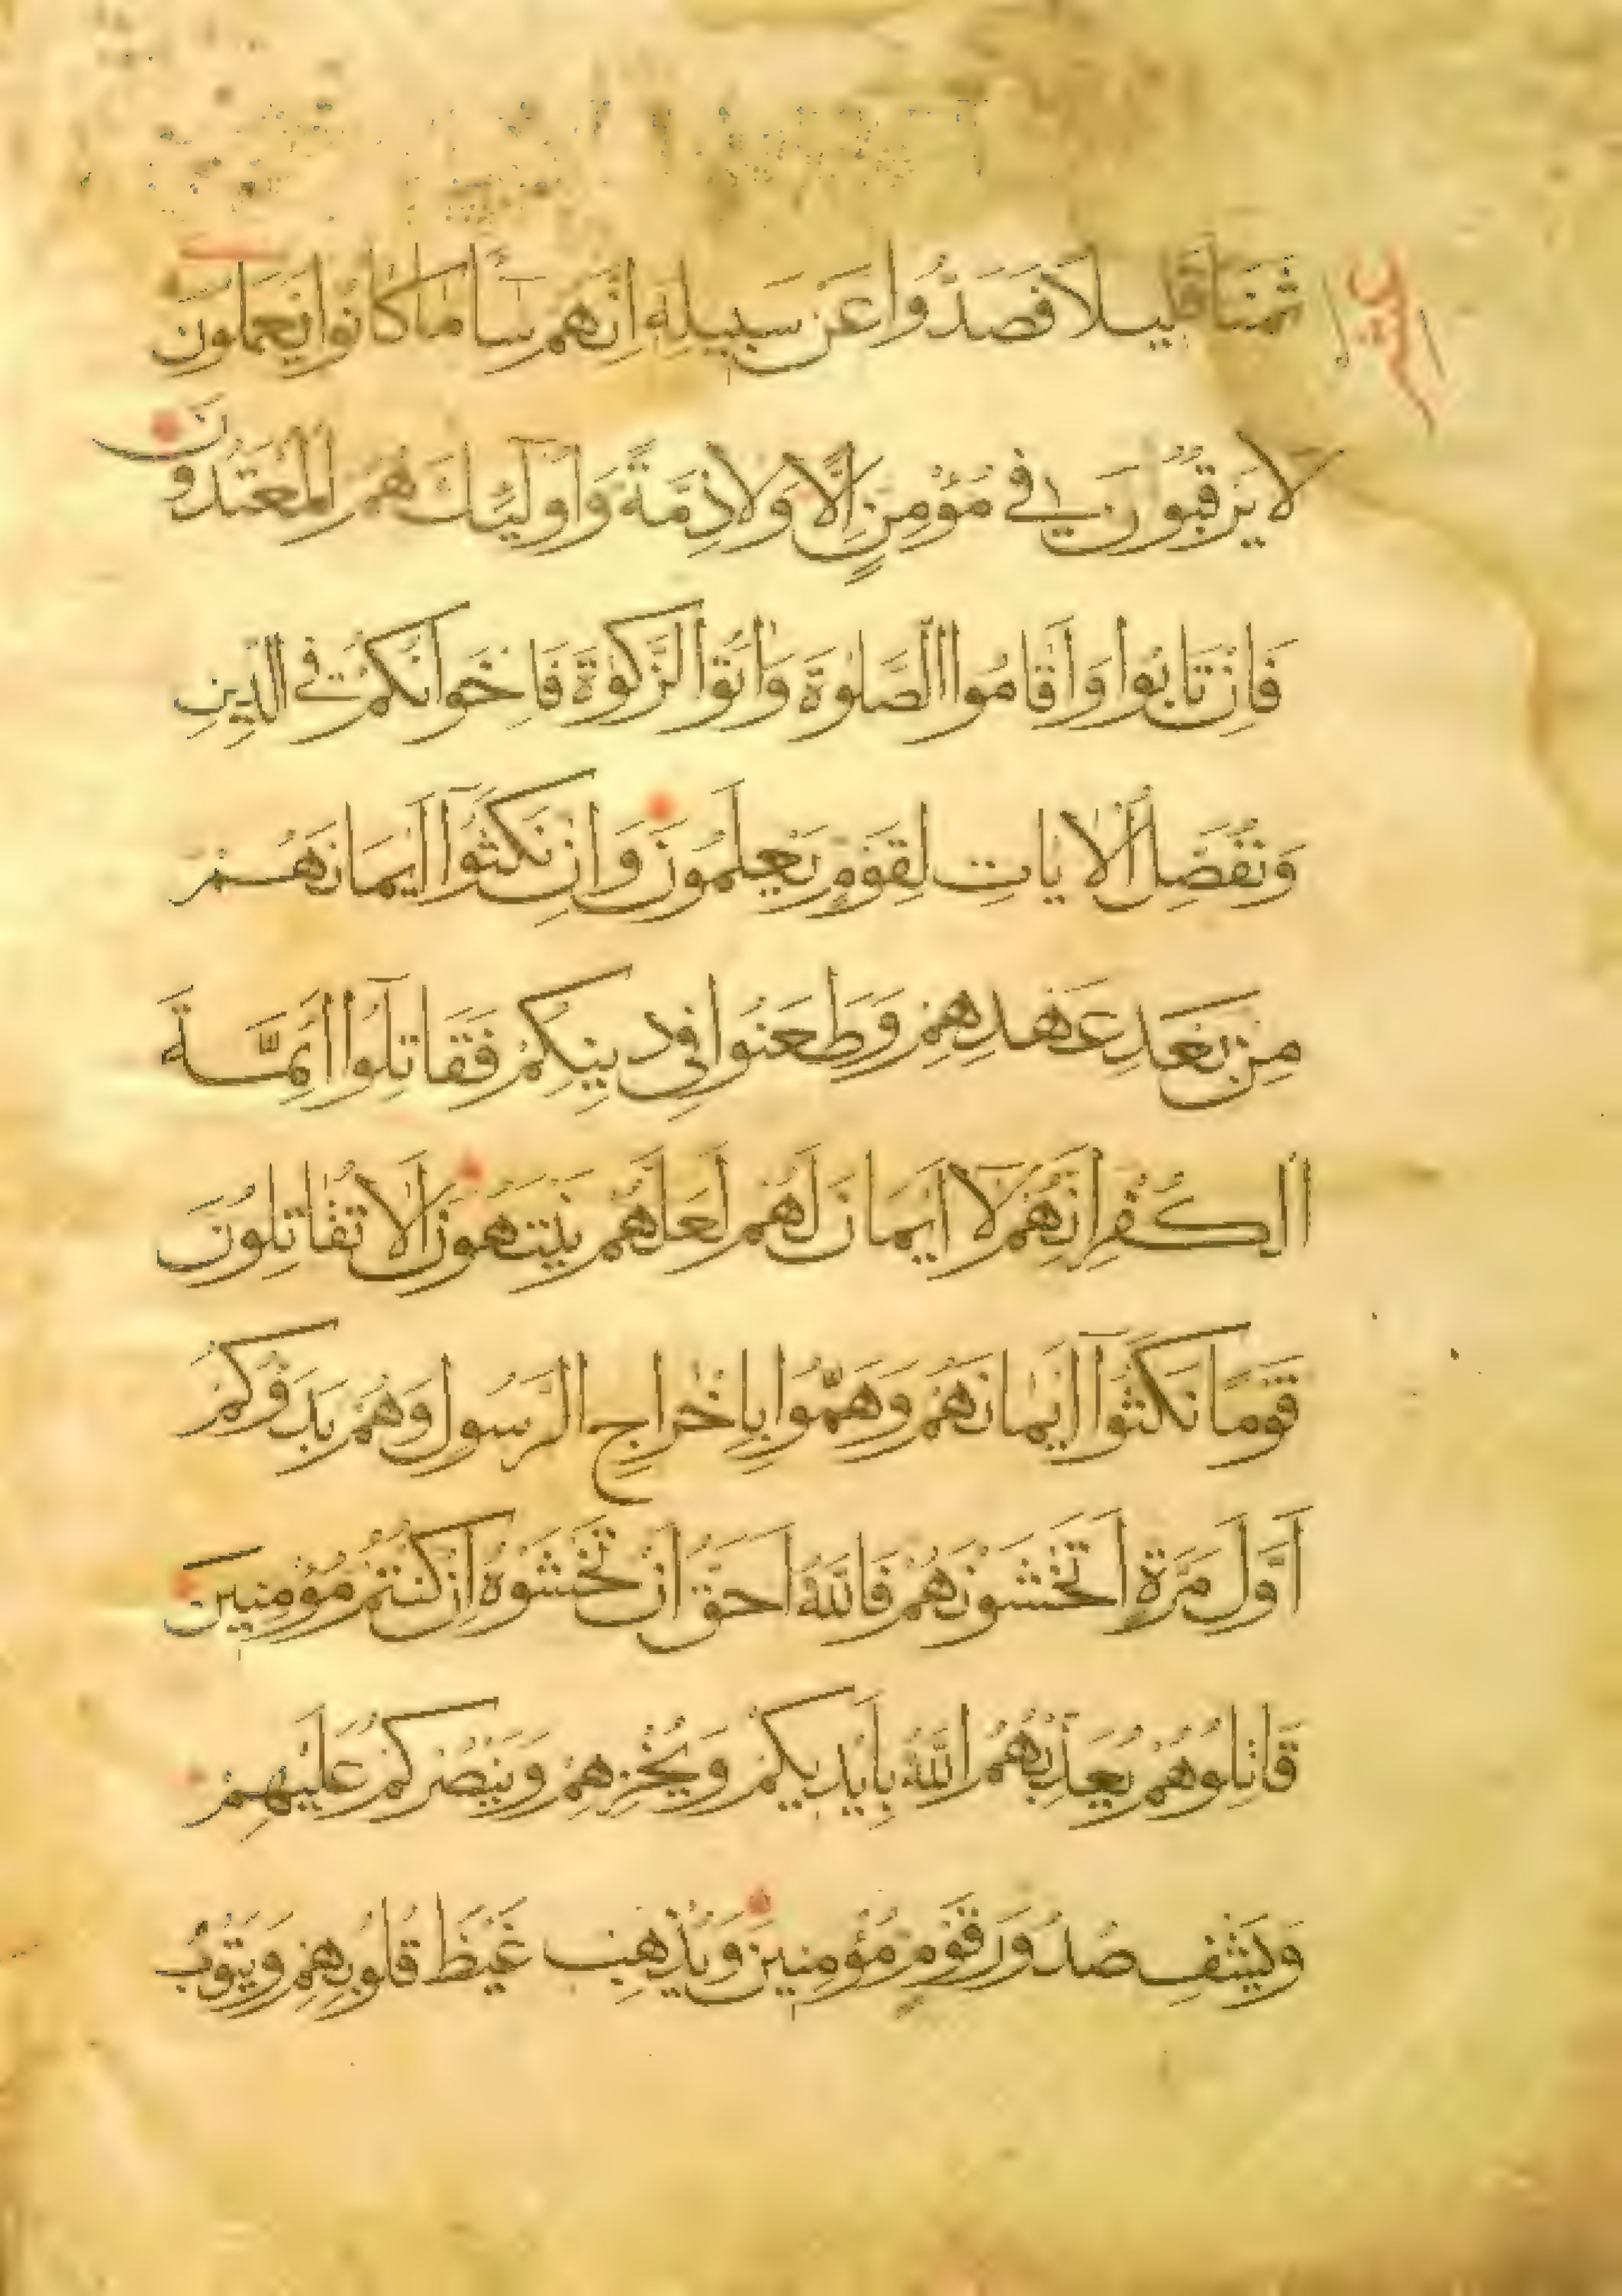 ثَمَنًا قَلِيلًا فَصَدُّوا عَن سَبِيلِهِ اِنَّهُمْ سَآءَ مَا كَانُوا يَعْمَلُونَ
لَا يَرْقُبُونَ فِي مُؤْمِنٍ اِلًّا وَلَا ذِمَّةً وَاُولَٓئِكَ هُمُ الْمُعْتَدُونَ
فَاِنْ تَابُوا وَاَقَامُوا الصَّلٰوةَ وَاٰتَوُا الزَّكٰوةَ فَاِخْوَانُكُمْ فِي الدِّينِ
وَنُفَصِّلُ الْاٰيَاتِ لِقَوْمٍ يَعْلَمُونَ وَاِنْ نَكَثُوٓا اَيْمَانَهُمْ
مِنْ بَعْدِ عَهْدِهِمْ وَطَعَنُوا فِي دِينِكُمْ فَقَاتِلُوٓا اَئِمَّةَ
الْكُفْرِ اِنَّهُمْ لَآ اَيْمَانَ لَهُمْ لَعَلَّهُمْ يَنْتَهُونَ اَلَا تُقَاتِلُونَ
قَوْمًا نَكَثُوٓا اَيْمَانَهُمْ وَهَمُّوا بِاِخْرَاجِ الرَّسُولِ وَهُمْ بَدَؤُكُمْ
اَوَّلَ مَرَّةٍ اَتَخْشَوْنَهُمْ فَاللّٰهُ اَحَقُّ اَنْ تَخْشَوْهُ اِنْ كُنْتُمْ مُؤْمِنِينَ
قَاتِلُوهُمْ يُعَذِّبْهُمُ اللّٰهُ بِاَيْدِيكُمْ وَيُخْزِهِمْ وَيَنْصُرْكُمْ عَلَيْهِمْ
وَيَشْفِ صُدُورَ قَوْمٍ مُؤْمِنِينَ وَيُذْهِبْ غَيْظَ قُلُوبِهِمْ وَيَتُوبُ